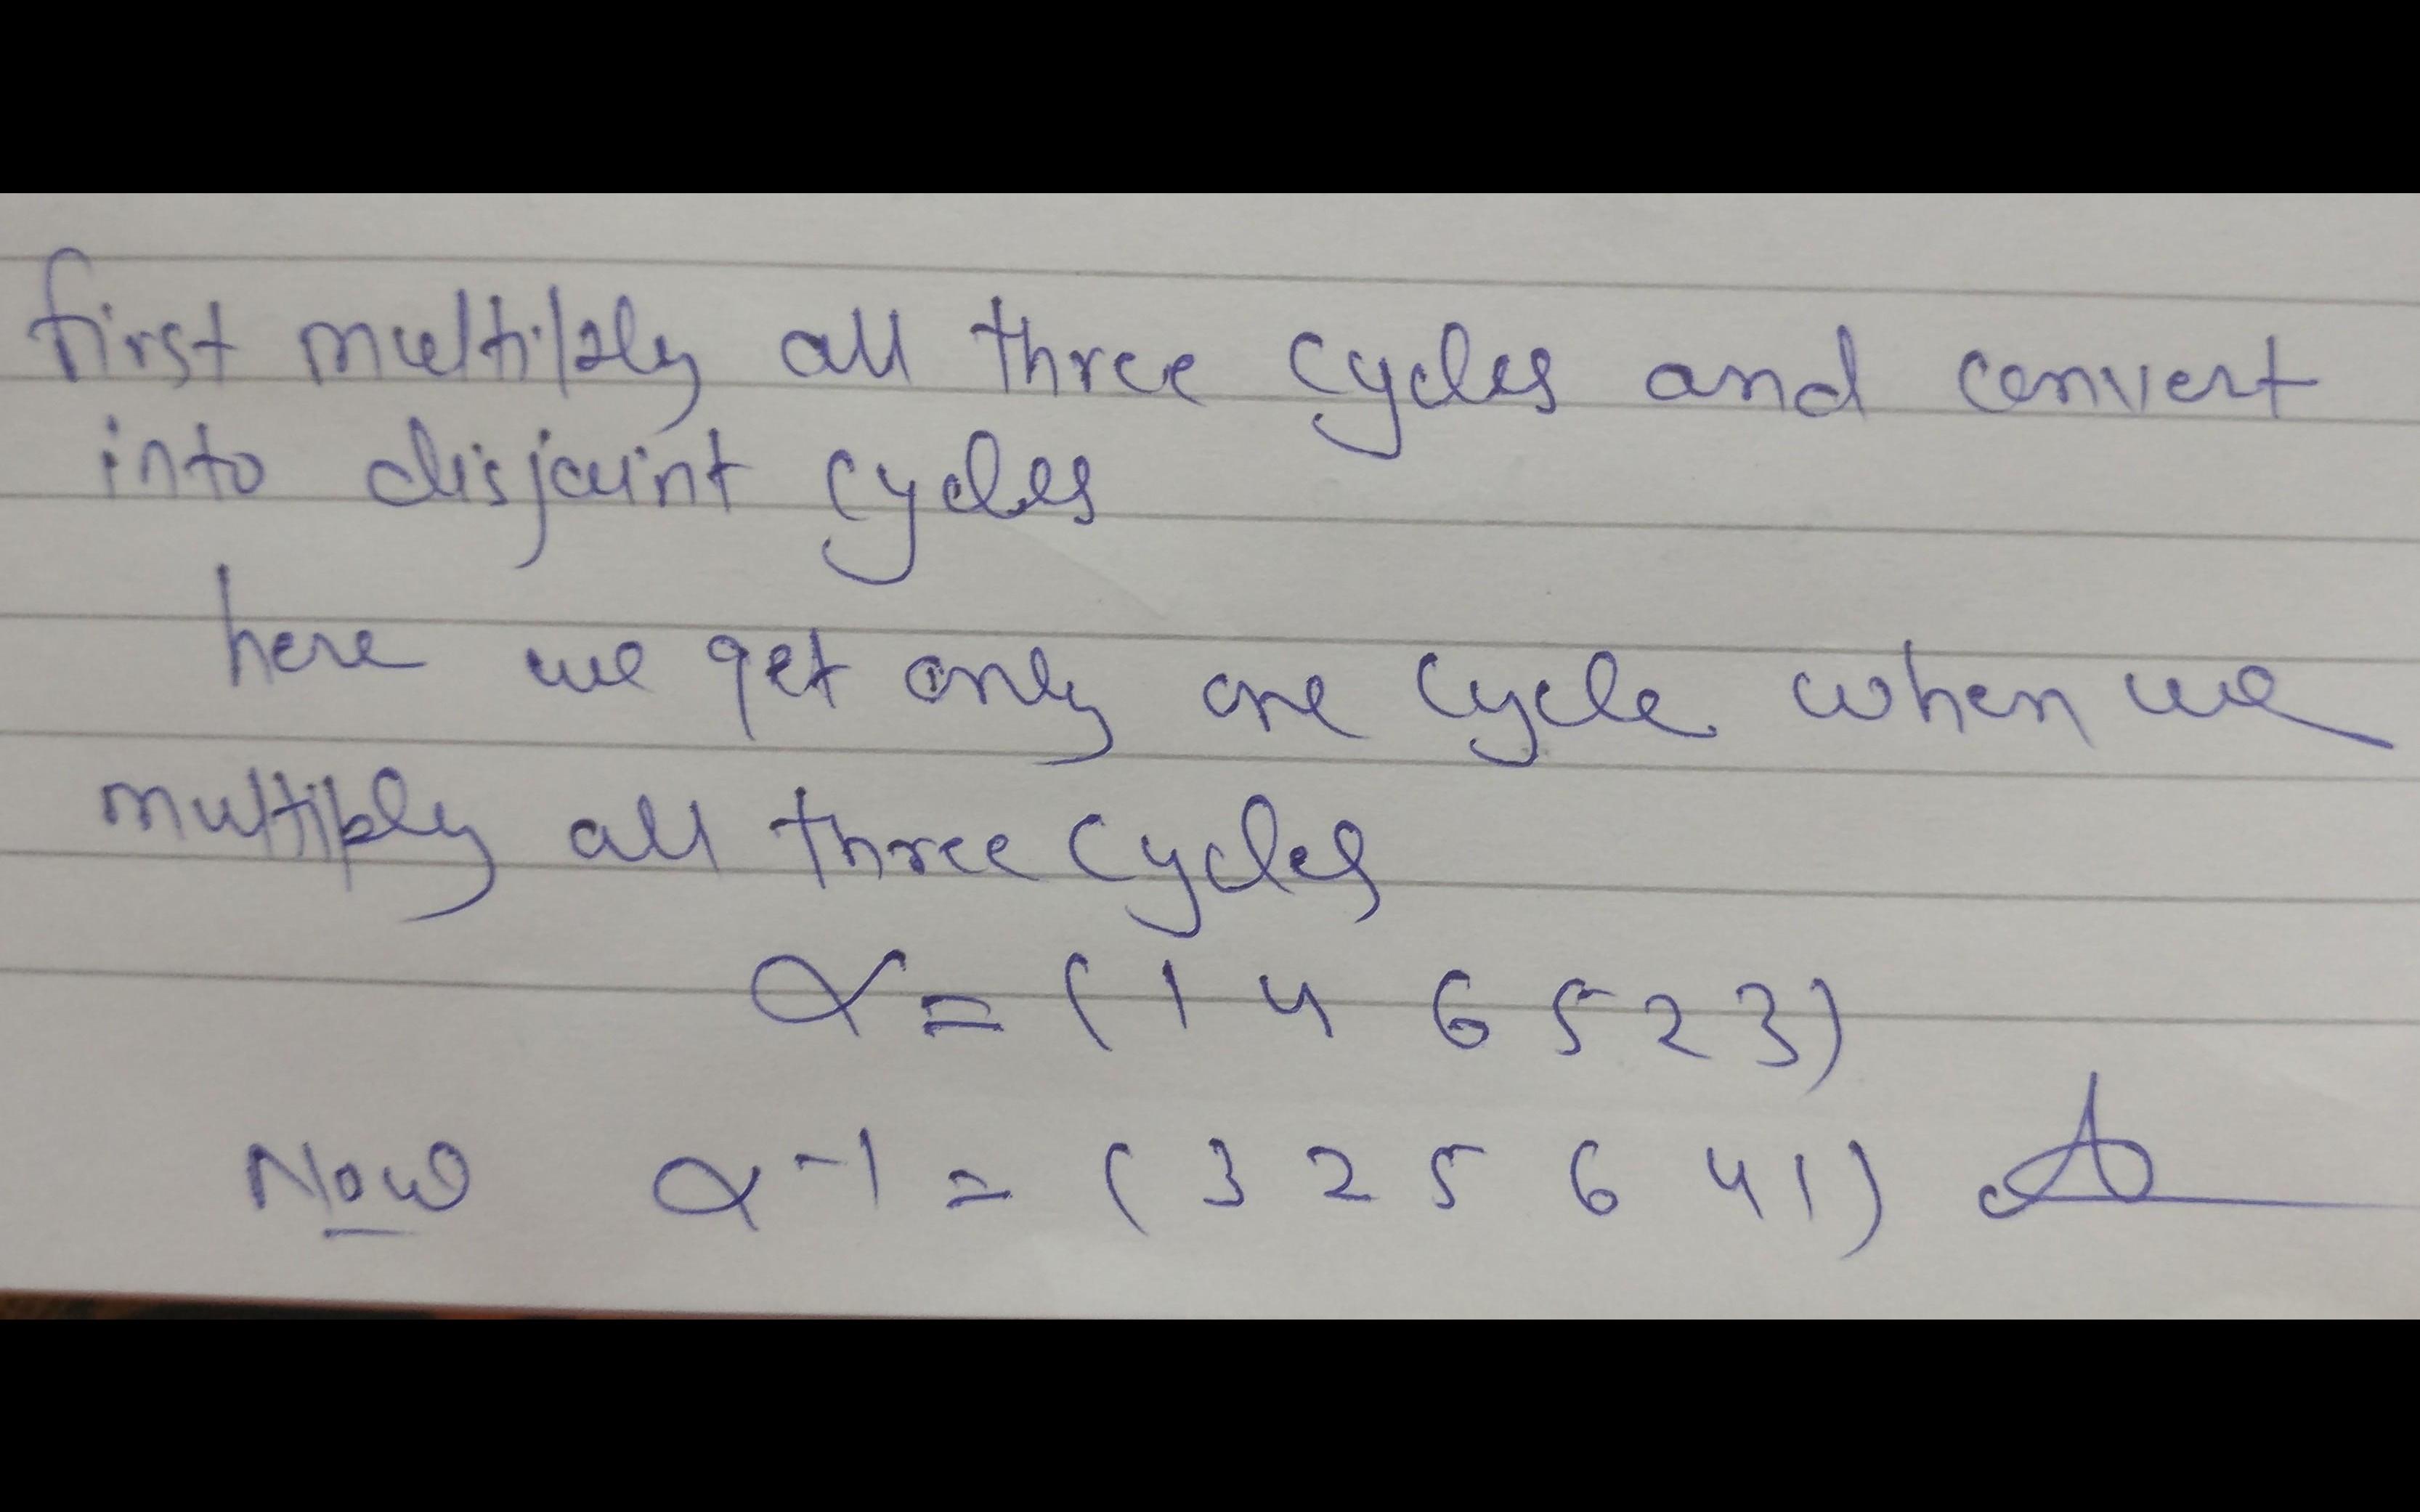 first multiply all three cycles and convert
into disjoint cycles
here we get only one cycle when we
multiply all three cycles
α = ( 1 4 6 5 2 3 )
Now α⁻¹ = ( 3 2 5 6 4 1 )